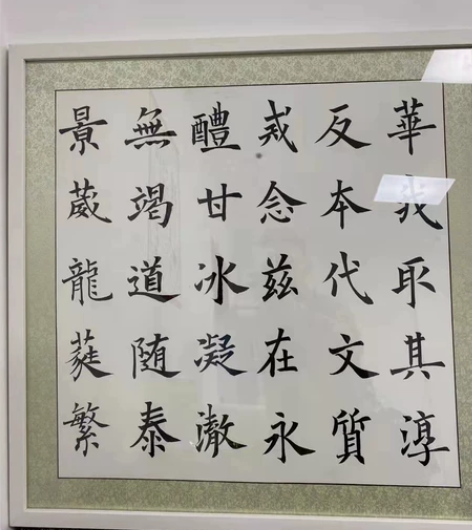 華我取其淳
反本代文質
戒念兹在永
醴甘冰凝澈
無竭道随泰
景葳龍蕤繁